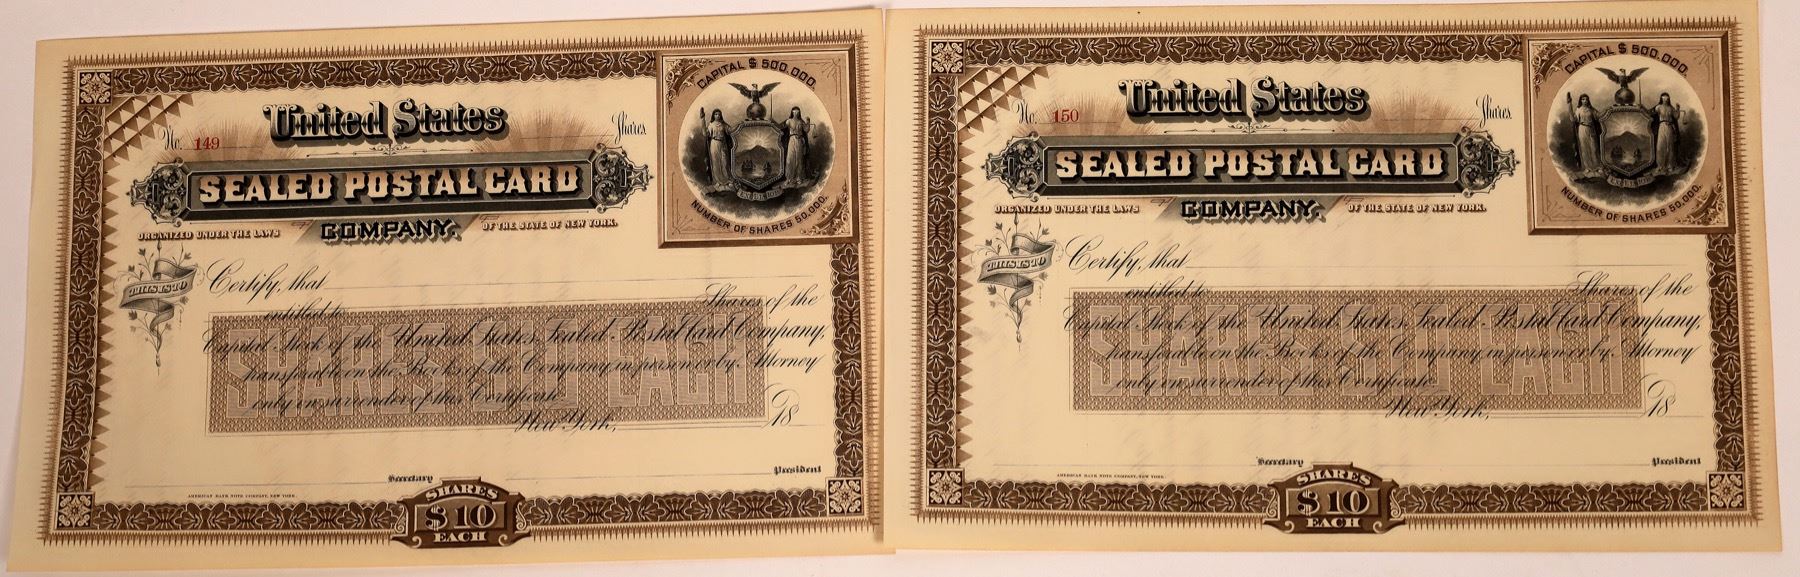 United States
No. 149
Shares
SEALED POSTAL CARD
COMPANY.
ORGANIZED UNDER THE LAWS
OF THE STATE OF NEW YORK.
CAPITAL $ 500.000.
NUMBER OF SHARES 50.000.
THIS IS TO
Certify, that
entitled to
Shares of the
Capital Stock of the United States Sealed Postal Card Company,
transferable on the Books of the Company in person or by Attorney
only on surrender of this Certificate.
SHARES $10 EACH
New York,
18
Secretary
President
AMERICAN BANK NOTE COMPANY, NEW YORK.
SHARES
$ 10
EACH
United States
No. 150
Shares
SEALED POSTAL CARD
COMPANY.
ORGANIZED UNDER THE LAWS
OF THE STATE OF NEW YORK.
CAPITAL $ 500.000.
NUMBER OF SHARES 50.000.
THIS IS TO
Certify, that
entitled to
Shares of the
Capital Stock of the United States Sealed Postal Card Company,
transferable on the Books of the Company in person or by Attorney
only on surrender of this Certificate.
SHARES $10 EACH
New York,
18
Secretary
President
AMERICAN BANK NOTE COMPANY, NEW YORK.
SHARES
$ 10
EACH